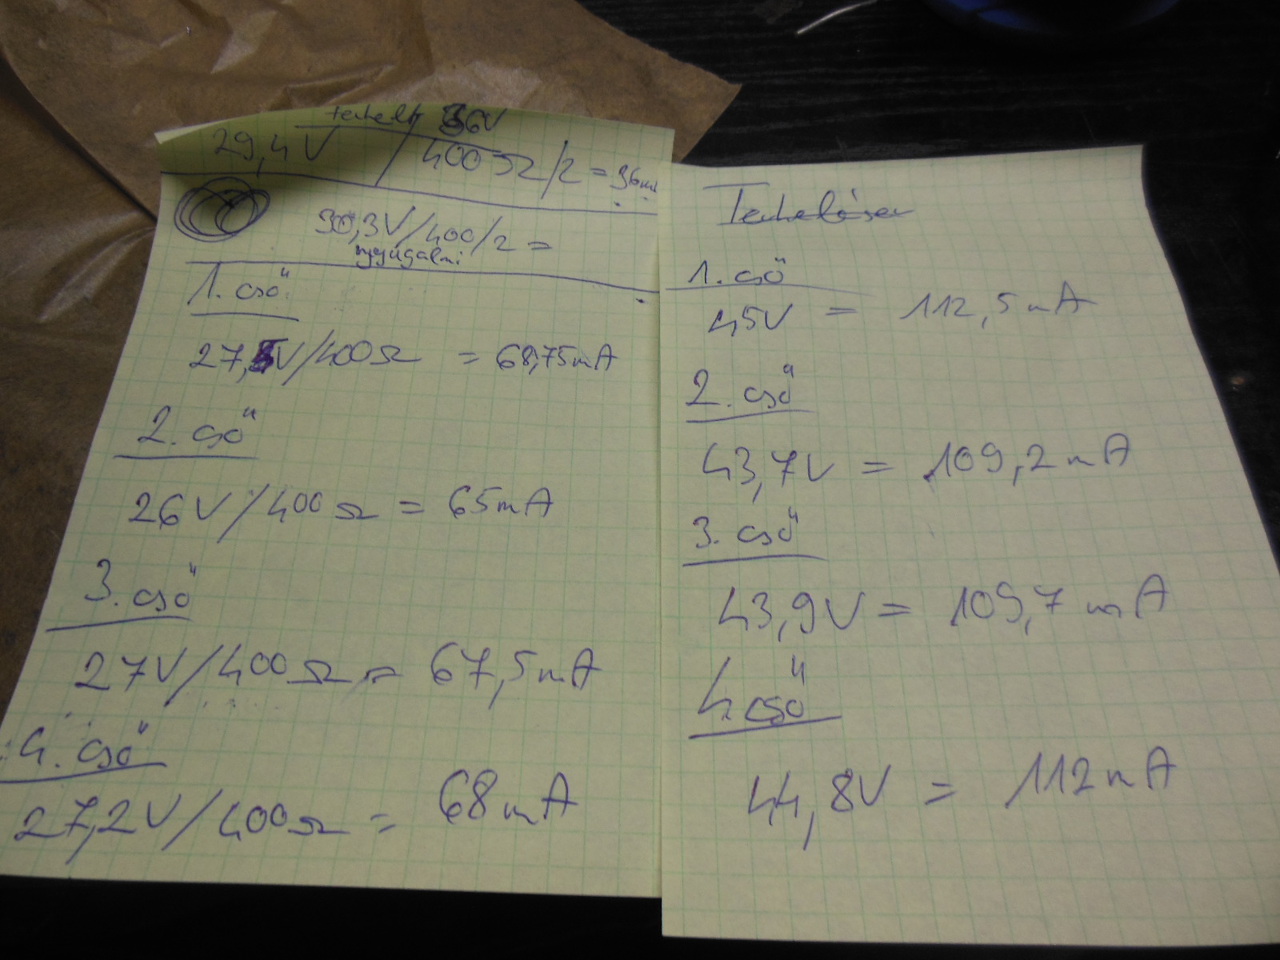 terhelt 36V
29,4V / 400Ω/2 = 36m
30,3V/400/2 =
nyugalmi
1. cső
27,5V/400Ω = 68,75mA
2. cső
26V/400Ω = 65mA
3. cső
27V/400Ω = 67,5mA
4. cső
27,2V/400Ω = 68mA
Terhelésen
1. cső
45V = 112,5mA
2. cső
43,7V = 109,2mA
3. cső
43,9V = 109,7mA
4. cső
44,8V = 112mA